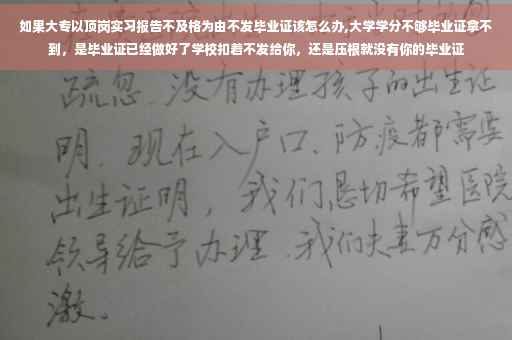 如果大专以顶岗实习报告不及格为由不发毕业证该怎么办,大学学分不够毕业证拿不
到，是毕业证已经做好了学校扣着不发给你，还是压根就没有你的毕业证
疏忽．没有办理孩子的出生证
明．现在入户口、防疫都需要
出生证明，我们恳切希望医院
领导给予办理．我们夫妻万分感
激。